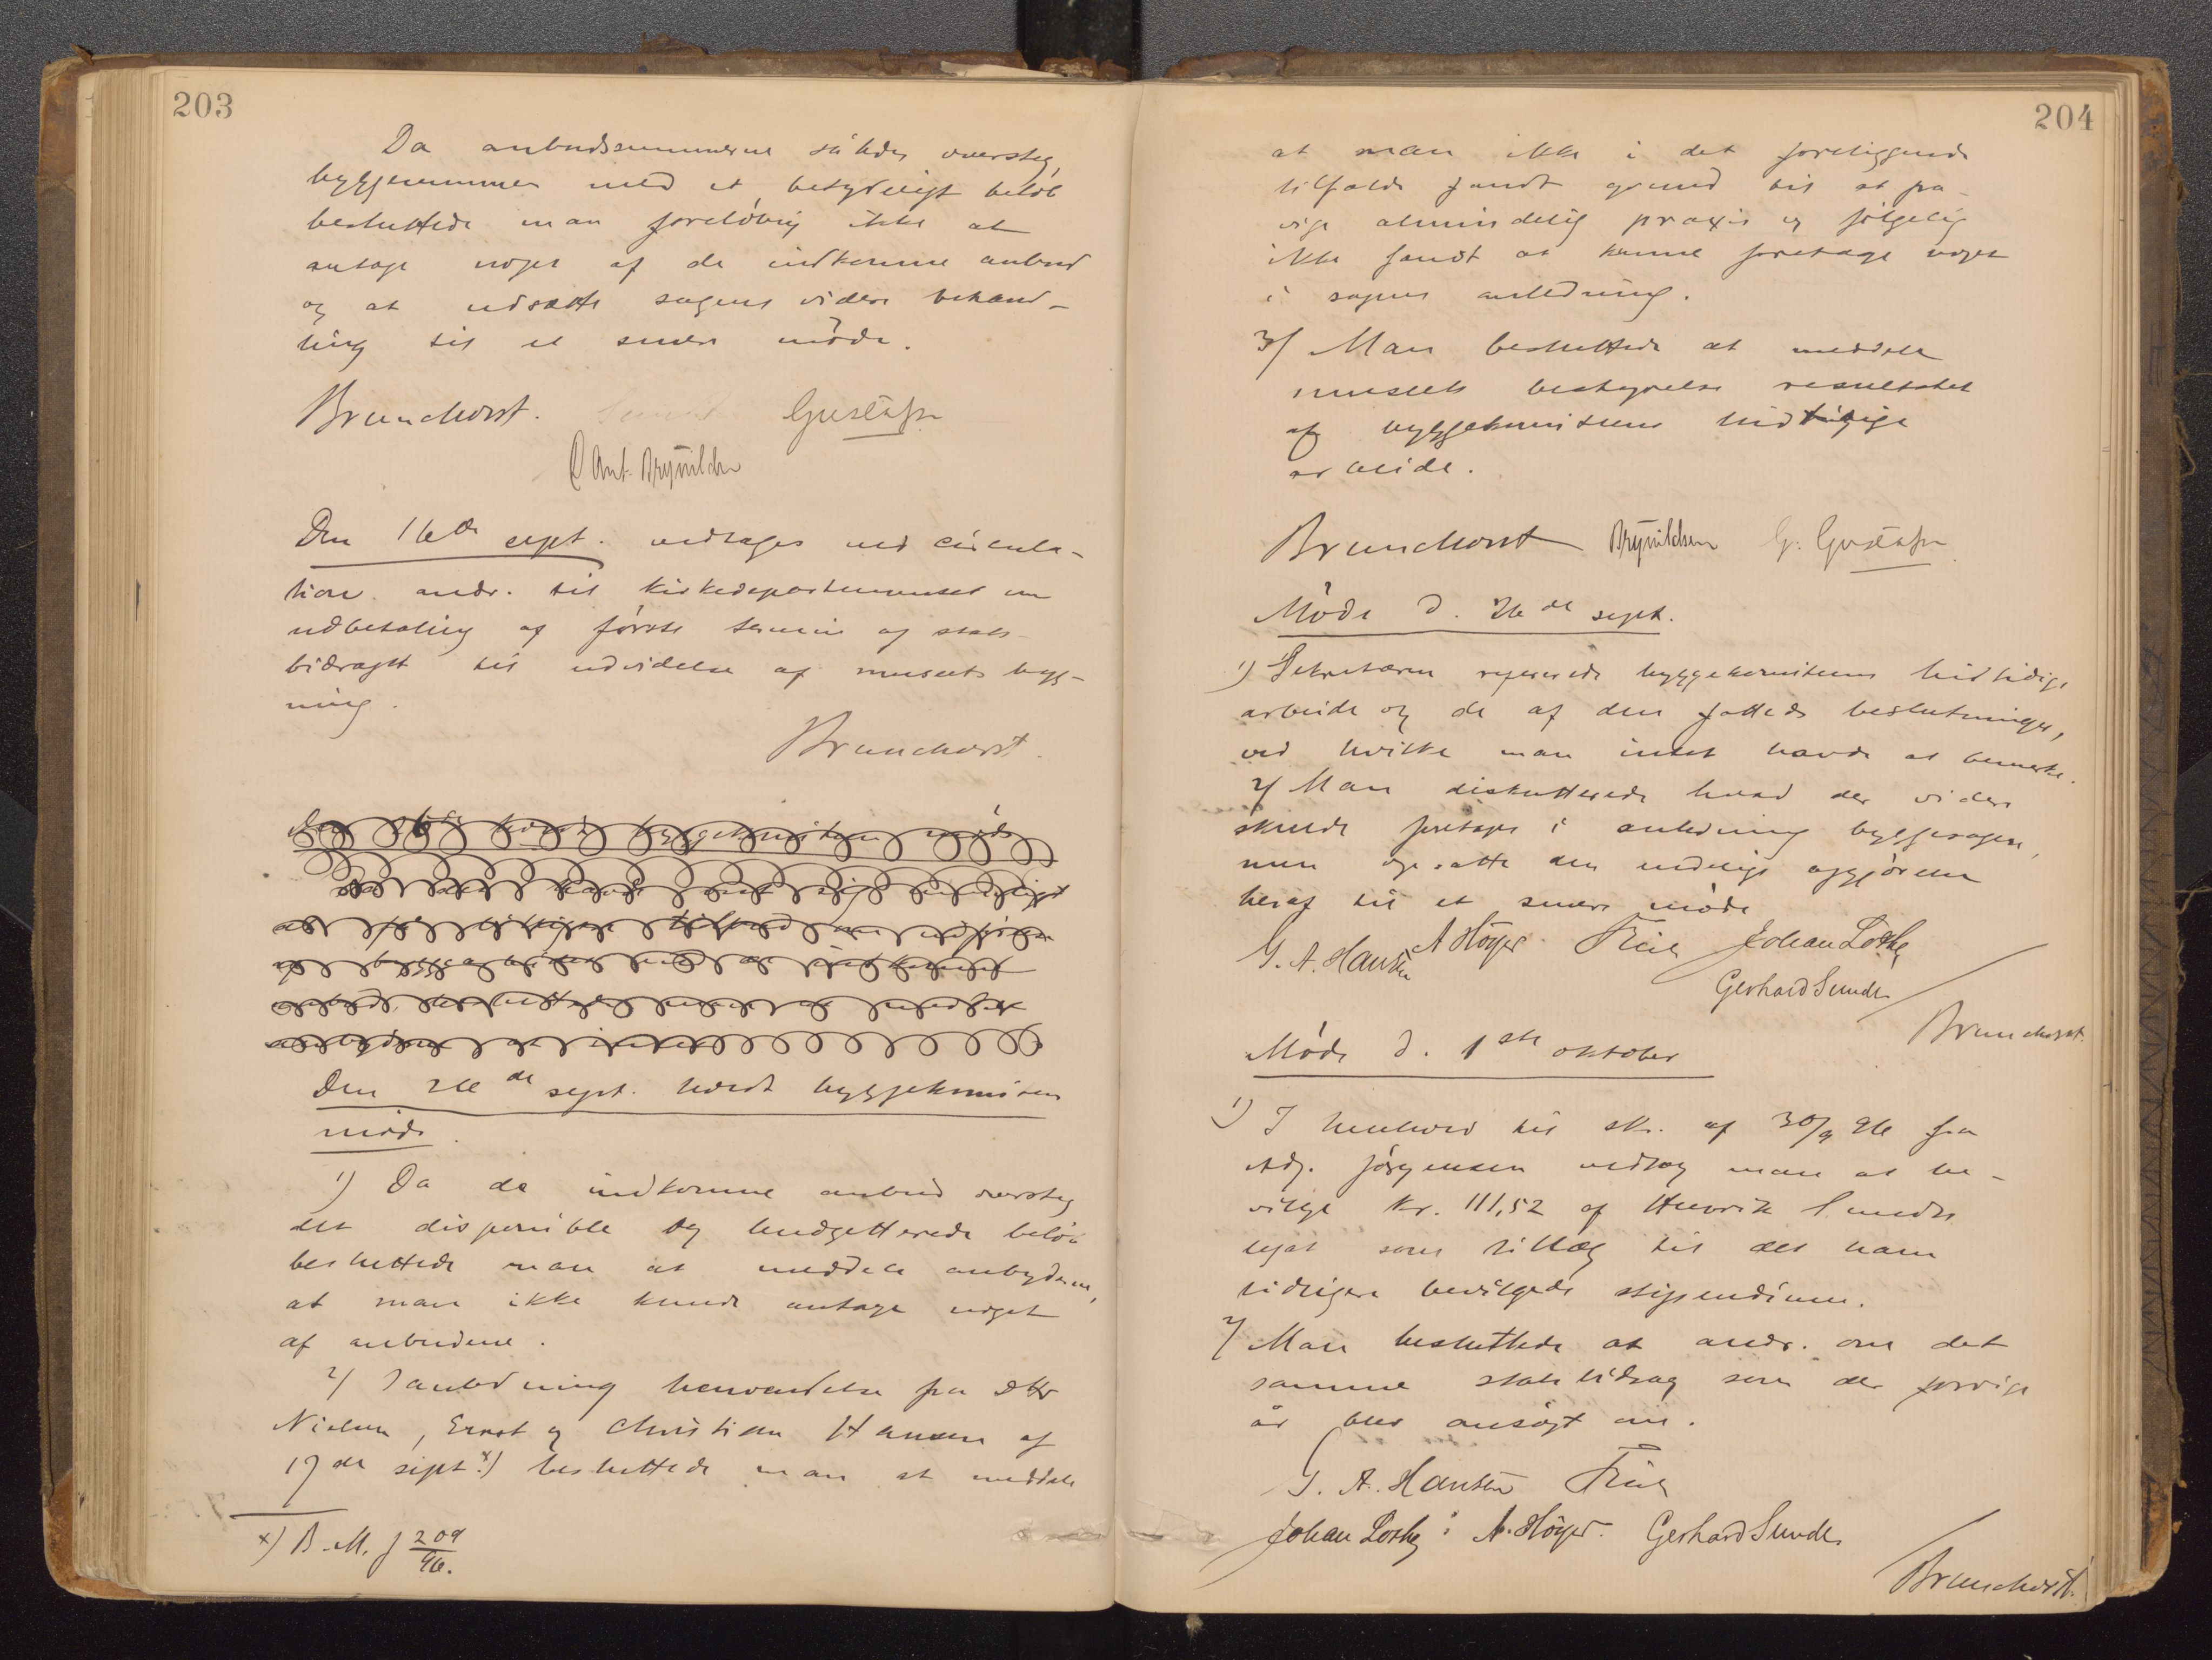 203
Da anbudssummerne således oversteg
byggesummen med et betydeligt beløb
besluttede man foreløbig ikke at
antage noget af de indkomne anbud
og at udsætte sagens videre behand-
ling til et senere møde.
Brunchorst. Gustafson
Ant. Brynildsen
Den 16de sept. vedtoges ved cirkula-
tion andr. til kirkedepartementet om
udbetaling af første termin af stats-
bidraget til udvidelse af museets byg-
ning.
Brunchorst.
Den 26de sept. holdt byggekomiteen
møde.
1) Da de indkomne anbud oversteg
det disponible og budgetterede beløb
besluttede man at meddele anbyderne,
at man ikke kunde antage noget
af anbudene.
2) I anledning henvendelse fra
Nielsen, Ernst og Christian Hansen af
17de sept.x) besluttede man at meddele
x) B.M. J 209/96.
204
at man ikke i det foreliggende
tilfælde fandt grund til at fra-
vige almindelig praxis og følgelig
ikke fandt at kunne foretage noget
i sagens anledning.
3) Man besluttede at meddele
museets bestyrelse resultatet
af byggekomiteens hidtidige
arbeide.
Brunchorst Brynildsen G. Gustafson
Møde d. 26de sept.
1) Sekretæren refererede byggekomiteens hidtidige
arbeide og de af den fattede beslutninger,
ved hvilke man intet havde at bemerke.
2) Man diskutterede hvad der videre
skulde foretages i anledning byggesagen,
men opsatte den endelige afgjørelse
heraf til et senere møde
G. A. Hansen A Høyer. Friele Johan Lothe
Gerhard Sunde
Brunchorst.
Møde d. 1ste oktober
1) I henhold til skr. af 30/9 96 fra
Adj. Jørgensen vedtog man at be-
vilge kr. 111,52 af Henrik Sundts
legat som tillæg til det ham
tidligere bevilgede stipendium.
2) Man besluttede at andr. om det
samme statsbidrag som der forrige
år blev ansøgt om.
G. A. Hansen Friele
Johan Lothe A. Høyer. Gerhard Sunde
Brunchorst.